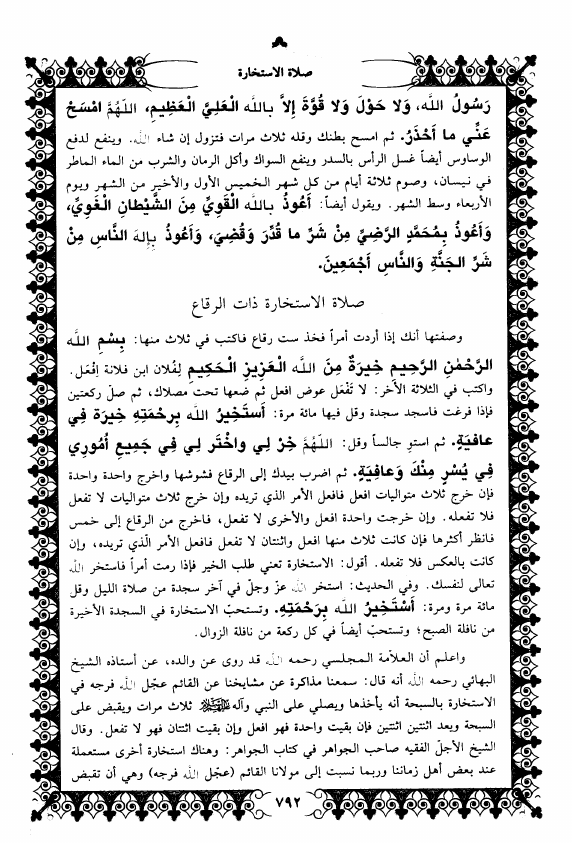 صلاة الاستخارة
رَسُولُ اللهِ، وَلا حَوْلَ وَلا قُوَّةَ إِلاَّ بِاللهِ الْعَلِيِّ الْعَظِيمِ، اللهُمَّ امْسَحْ
عَنِّي ما أَحْذَرُ. ثم امسح بطنك وقله ثلاث مرات فتزول إن شاء الله. وينفع لدفع
الوساوس أيضاً غسل الرأس بالسدر وينفع السواك وأكل الرمان والشرب من الماء الماطر
في نيسان، وصوم ثلاثة أيام من كل شهر الخميس الأول والأخير من الشهر ويوم
الأربعاء وسط الشهر. ويقول أيضاً: أَعُوذُ بِاللهِ الْقَوِيِّ مِنَ الشَّيْطانِ الْغَوِيِّ،
وَأَعُوذُ بِمُحَمَّدٍ الرَّضِيِّ مِنْ شَرِّ ما قُدِّرَ وَقُضِيَ، وَأَعُوذُ بِإِلهِ النَّاسِ مِنْ
شَرِّ الجَنَّةِ وَالنَّاسِ أَجْمَعِينَ.
صلاة الاستخارة ذات الرقاع
وصفتها أنك إذا أردت أمراً فخذ ست رقاع فاكتب في ثلاث منها: بِسْمِ اللهِ
الرَّحْمٰنِ الرَّحِيمِ خِيرَةٌ مِنَ اللهِ الْعَزِيزِ الْحَكِيمِ لِفُلان ابن فلانة إفْعَل.
واكتب في الثلاثة الأُخر: لا تَفْعَل عوض افعل ثم ضعها تحت مصلاك، ثم صلّ ركعتين
فإذا فرغت فاسجد سجدة وقل فيها مائة مرة: أَسْتَخِيرُ اللهَ بِرَحْمَتِهِ خِيرَةً فِي
عافِيَةٍ. ثم استو جالساً وقل: اللهُمَّ خِرْ لِي واخْتَر لِي فِي جَمِيعِ أُمُورِي
فِي يُسْرٍ مِنْكَ وَعافِيَةٍ. ثم اضرب بيدك إلى الرقاع فشوشها واخرج واحدة واحدة
فإن خرج ثلاث متواليات افعل فافعل الأمر الذي تريده وإن خرج ثلاث متواليات لا تفعل
فلا تفعله. وإن خرجت واحدة افعل والأخرى لا تفعل، فاخرج من الرقاع إلى خمس
فانظر أكثرها فإن كانت ثلاث منها افعل واثنتان لا تفعل فافعل الأمر الّذي تريده، وإن
كانت بالعكس فلا تفعله. أقول: الاستخارة تعني طلب الخير فإذا رمت أمراً فاستخر الله
تعالى لنفسك. وفي الحديث: استخر الله عزّ وجلّ في آخر سجدة من صلاة الليل وقل
مائة مرة ومرة: أَسْتَخِيرُ اللهَ بِرَحْمَتِهِ. وتستحبّ الاستخارة في السجدة الأخيرة
من نافلة الصبح؛ وتستحبّ أيضاً في كل ركعة من نافلة الزوال.
واعلم أن العلاّمة المجلسي رحمه الله قد روى عن والده، عن أستاذه الشيخ
البهائي رحمه الله أنه قال: سمعنا مذاكرة عن مشايخنا عن القائم عجّل الله فرجه في
الاستخارة بالسبحة أنه يأخذها ويصلي على النبي وآله ﷺ ثلاث مرات ويقبض على
السبحة ويعد اثنتين اثنتين فإن بقيت واحدة فهو افعل وإن بقيت اثنتان فهو لا تفعل. وقال
الشيخ الأجلّ الفقيه صاحب الجواهر في كتاب الجواهر: وهناك استخارة أخرى مستعملة
عند بعض أهل زماننا وربما نسبت إلى مولانا القائم (عجّل الله فرجه) وهي أن تقبض
٧٩٢